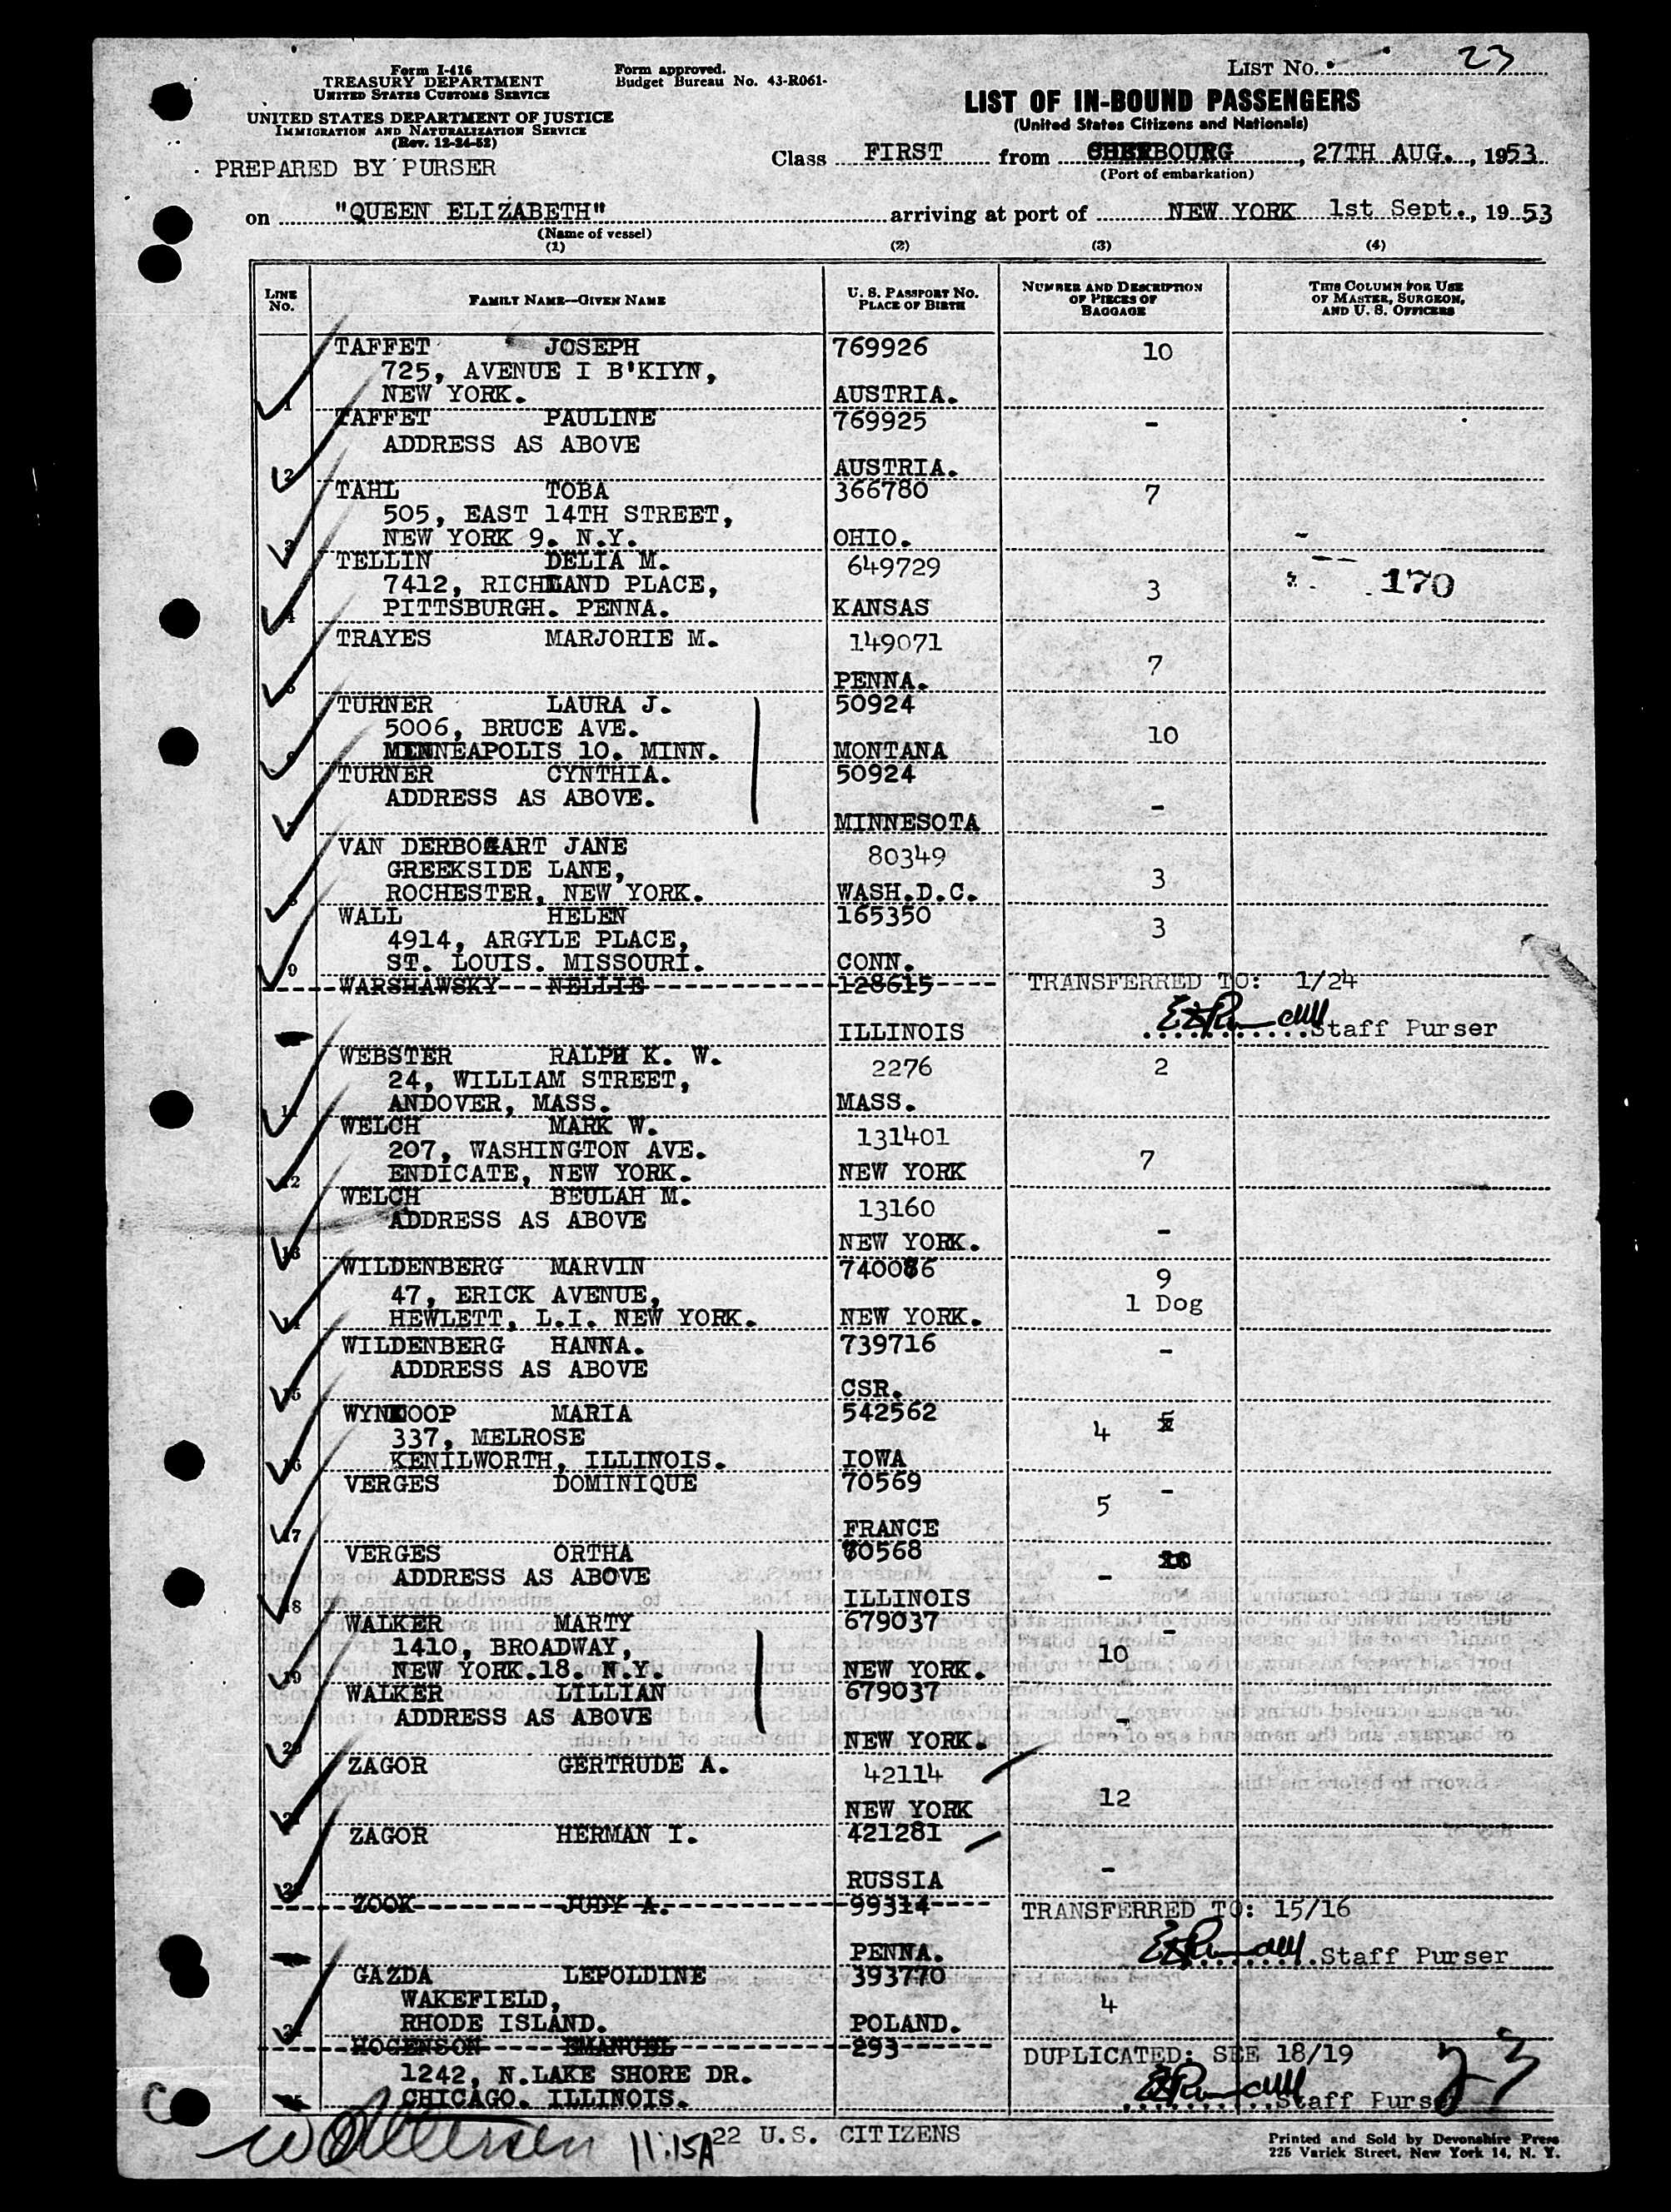 Form I-416
TREASURY DEPARTMENT
UNITED STATES CUSTOMS SERVICE
UNITED STATES DEPARTMENT OF JUSTICE
IMMIGRATION AND NATURALIZATION SERVICE
(Rev. 12-24-52)
PREPARED BY PURSER
Form approved.
Budget Bureau No. 43-R061-
LIST NO. 23
LIST OF IN-BOUND PASSENGERS
(United States Citizens and Nationals)
Class FIRST from CHERBOURG, 27TH AUG., 1953
(Port of embarkation)
on "QUEEN ELIZABETH" arriving at port of NEW YORK 1st Sept., 1953
(Name of vessel)
(1) (2) (3) (4)
LINE NO. FAMILY NAME—GIVEN NAME U. S. PASSPORT NO. PLACE OF BIRTH NUMBER AND DESCRIPTION OF PIECES OF BAGGAGE THIS COLUMN FOR USE OF MASTER, SURGEON, AND U. S. OFFICERS
TAFFET JOSEPH 769926 10
725, AVENUE I B'KIYN,
1 NEW YORK. AUSTRIA.
TAFFET PAULINE 769925 -
ADDRESS AS ABOVE
2 AUSTRIA.
TAHL TOBA 366780 7
505, EAST 14TH STREET,
3 NEW YORK 9. N.Y. OHIO.
TELLIN DELIA M. 649729
7412, RICHLAND PLACE, 3 170
4 PITTSBURGH. PENNA. KANSAS
TRAYES MARJORIE M. 149071
7
5 PENNA.
TURNER LAURA J. 50924
5006, BRUCE AVE. 10
6 MINNEAPOLIS 10. MINN. MONTANA
TURNER CYNTHIA. 50924
ADDRESS AS ABOVE. -
7 MINNESOTA
VAN DERBOGART JANE 80349
GREEKSIDE LANE, 3
8 ROCHESTER, NEW YORK. WASH.D.C.
WALL HELEN 165350 3
4914, ARGYLE PLACE,
9 ST. LOUIS. MISSOURI. CONN.
WARSHAWSKY NELLIE 128615 TRANSFERRED TO: 1/24
ILLINOIS Staff Purser
WEBSTER RALPH K. W. 2276 2
24, WILLIAM STREET,
11 ANDOVER, MASS. MASS.
WELCH MARK W. 131401
207, WASHINGTON AVE. 7
12 ENDICATE, NEW YORK. NEW YORK
WELCH BEULAH M. 13160
ADDRESS AS ABOVE -
13 NEW YORK.
WILDENBERG MARVIN 740086 9
47, ERICK AVENUE, 1 Dog
14 HEWLETT, L.I. NEW YORK. NEW YORK.
WILDENBERG HANNA. 739716 -
ADDRESS AS ABOVE
15 CSR.
WYNKOOP MARIA 542562
337, MELROSE 4
16 KENILWORTH, ILLINOIS. IOWA
VERGES DOMINIQUE 70569 -
5
17 FRANCE
VERGES ORTHA 70568
ADDRESS AS ABOVE -
18 ILLINOIS
WALKER MARTY 679037 -
1410, BROADWAY, 10
19 NEW YORK.18. N.Y. NEW YORK.
WALKER LILLIAN 679037
ADDRESS AS ABOVE -
20 NEW YORK.
ZAGOR GERTRUDE A. 42114
12
21 NEW YORK
ZAGOR HERMAN I. 421281
-
22 RUSSIA
ZOOK JUDY A. 99314 TRANSFERRED TO: 15/16
PENNA. Staff Purser
GAZDA LEPOLDINE 393770
WAKEFIELD, 4
24 RHODE ISLAND. POLAND.
HOGENSON EMANUEL 293 DUPLICATED: SEE 18/19
1242, N.LAKE SHORE DR.
25 CHICAGO. ILLINOIS. Staff Purser 23
11:15A 22 U.S. CITIZENS
Printed and Sold by Devonshire Press
225 Varick Street, New York 14, N. Y.